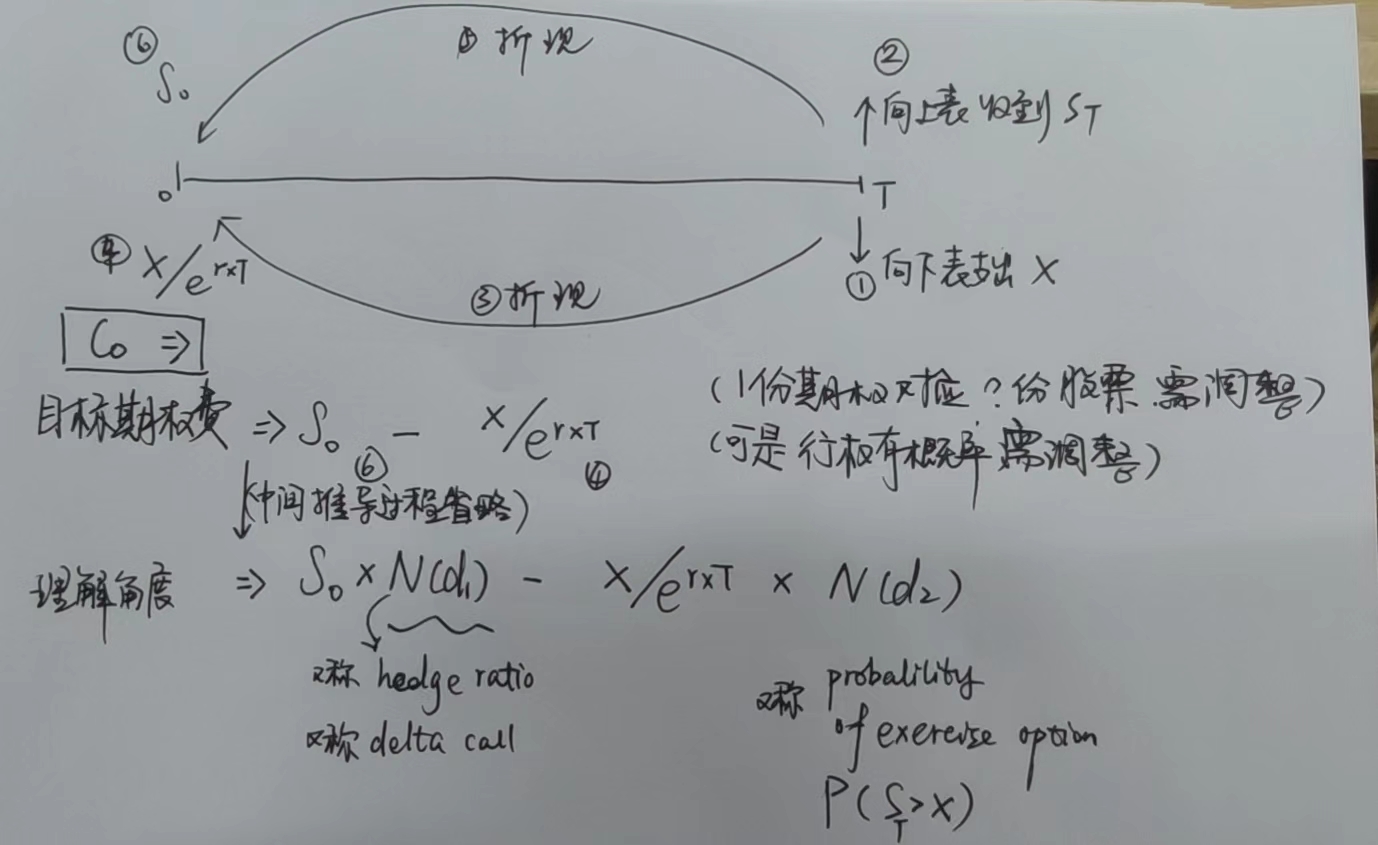 ⑥ ⑤ 折现 ②
S₀ ↑向上表收到 S_T
0 T
④ X/e^{r×T} ③折现 ①向下表支出 X
C₀ ⇒
目标期权费 ⇒ S₀ ⑥ − X/e^{r×T} ④
(1份期权对应?份股票 需调整)
(可是行权有概率 需调整)
(中间推导过程省略)
理解角度 ⇒ S₀ × N(d₁) − X/e^{r×T} × N(d₂)
又称 hedge ratio
又称 delta call
又称 probalility
of exercise option
P(S_T > X)